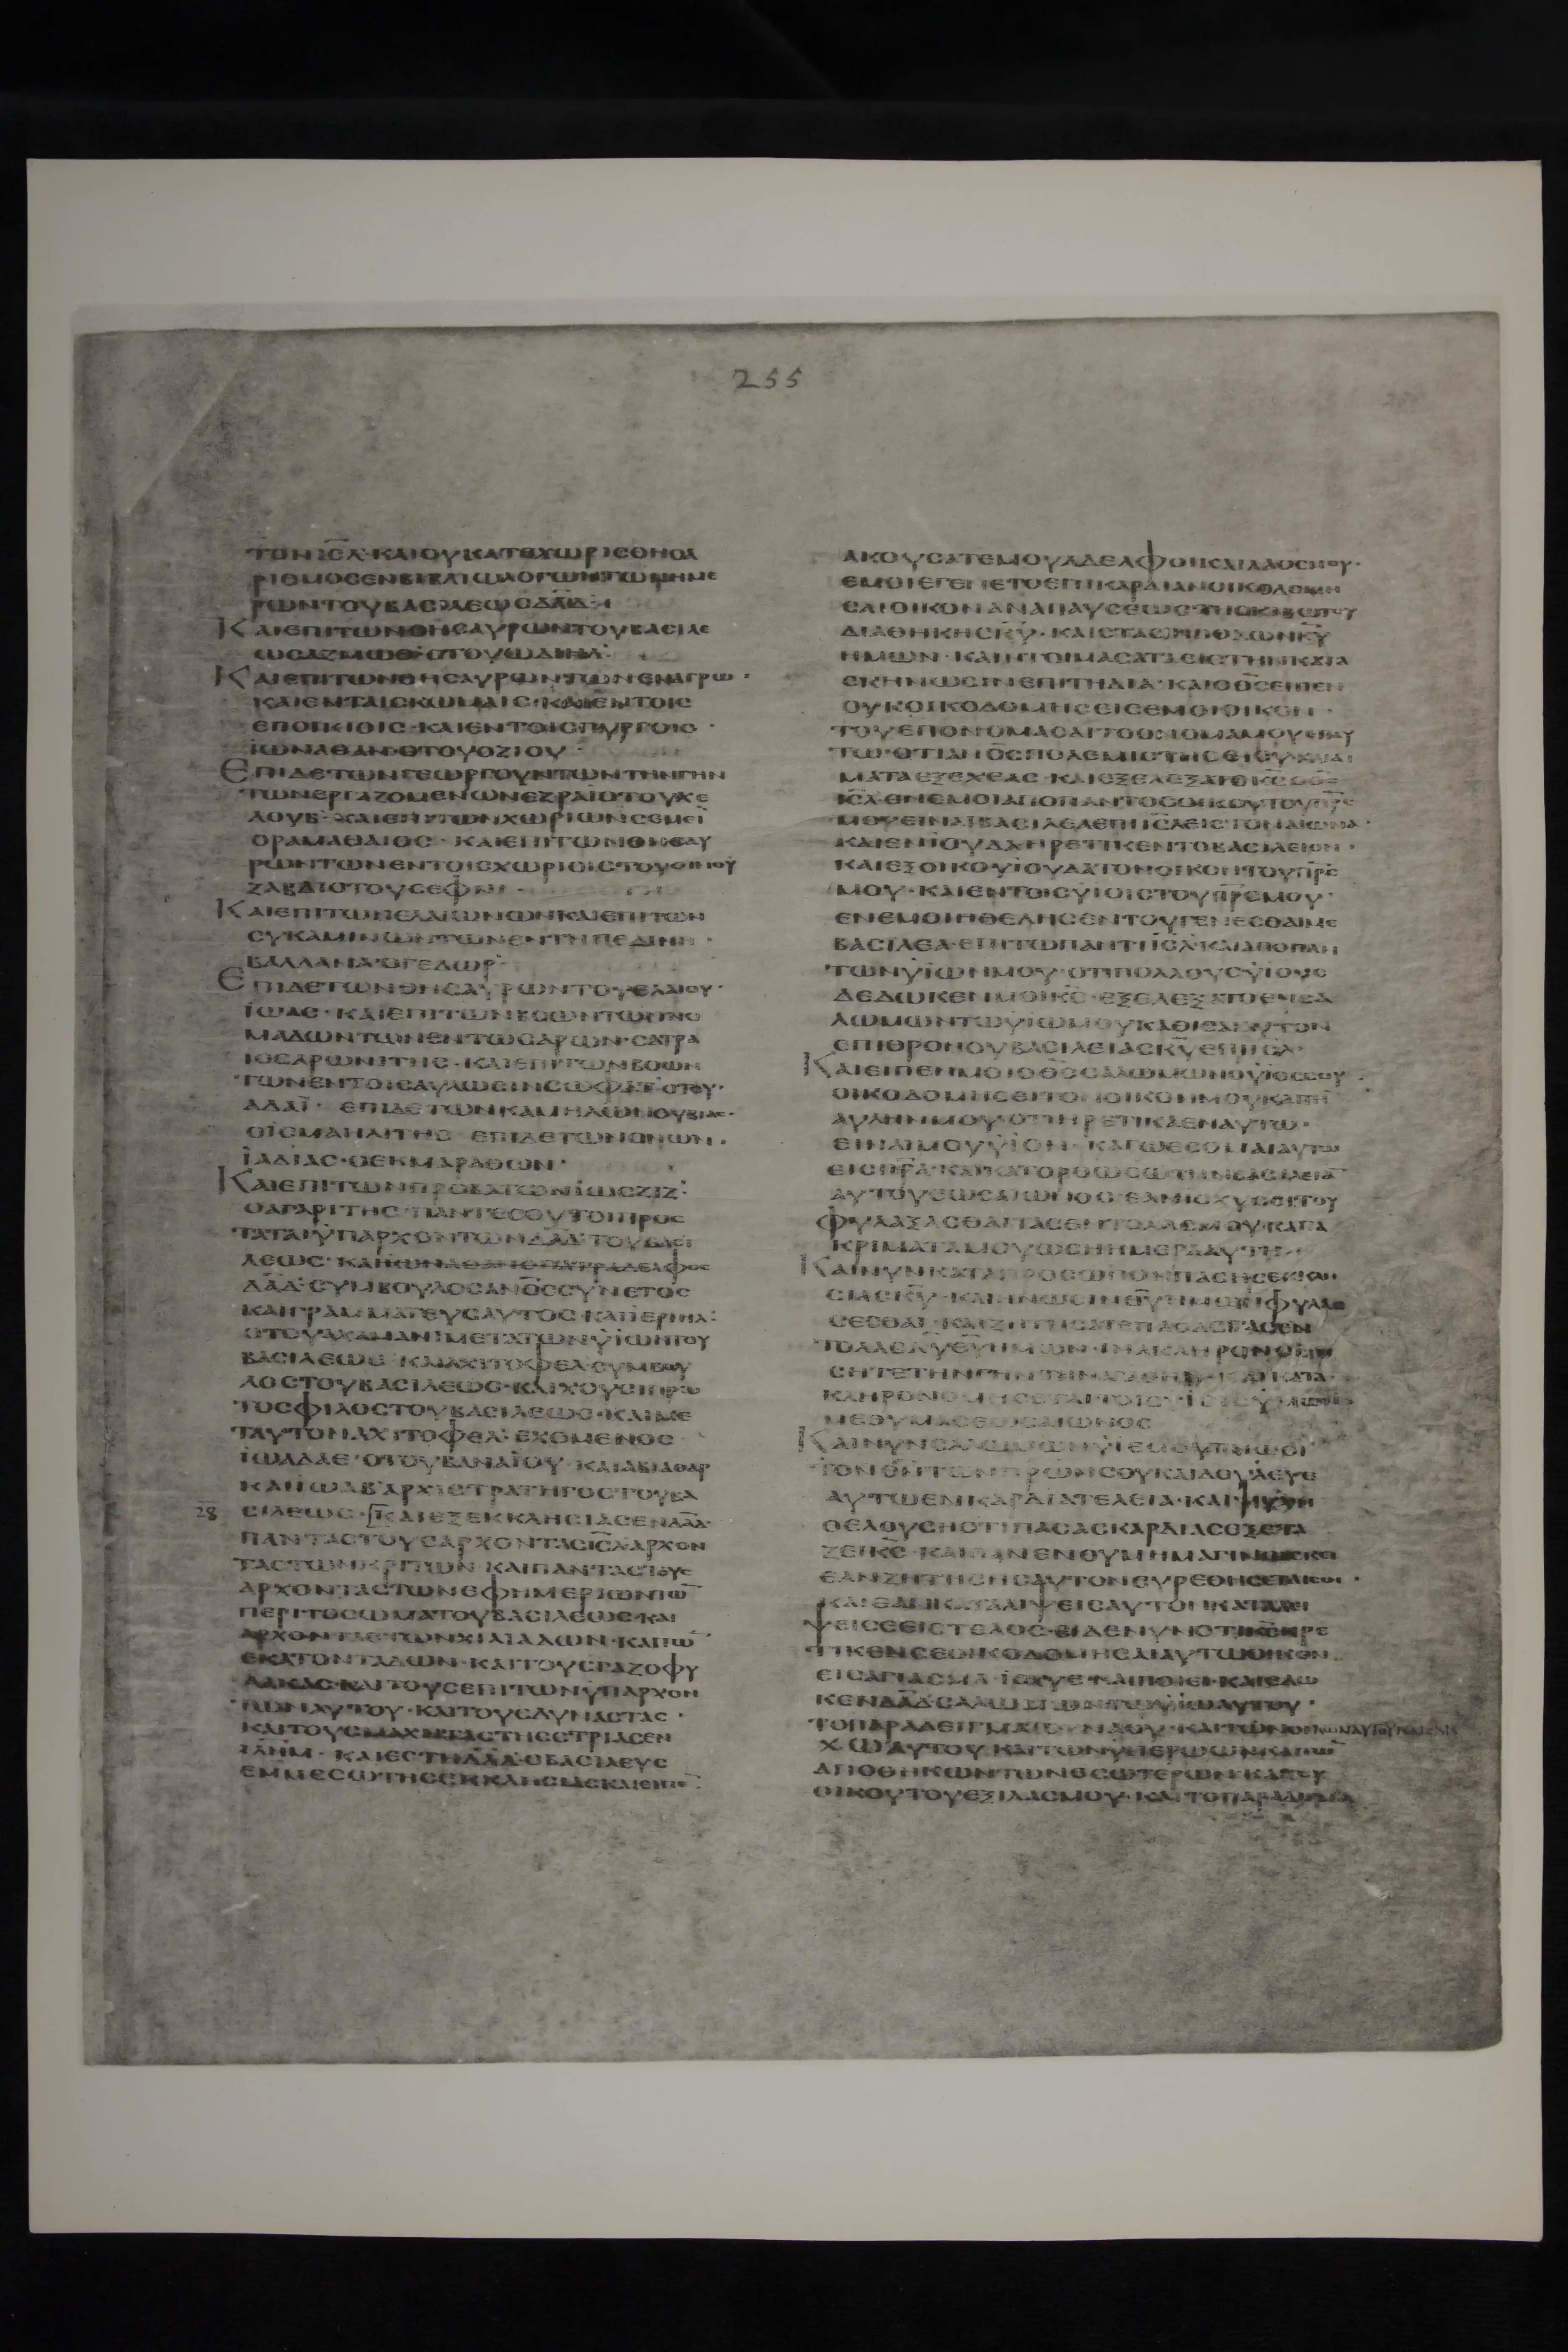 255
ΤΟΝ ΙΣΛ· ΚΑΙ ΟΥ ΚΑΤΕΧΩΡΙΣΘΗ Ο Α
ΡΙΘΜΟΣ ΕΝ ΒΙΒΛΙΩ ΛΟΓΩΝ ΤΩΝ ΗΜΕ
ΡΩΝ ΤΟΥ ΒΑΣΙΛΕΩΣ ΔΑΔ
ΚΑΙ ΕΠΙ ΤΩΝ ΘΗΣΑΥΡΩΝ ΤΟΥ ΒΑΣΙΛΕ
ΩΣ ΑΖΜΩΘ Ο ΤΟΥ ΩΔΙΗΛ:
ΚΑΙ ΕΠΙ ΤΩΝ ΘΗΣΑΥΡΩΝ ΤΩΝ ΕΝ ΑΓΡΩ·
ΚΑΙ ΕΝ ΤΑΙΣ ΚΩΜΑΙΣ· ΚΑΙ ΕΝ ΤΟΙΣ
ΕΠΟΙΚΙΟΙΣ· ΚΑΙ ΕΝ ΤΟΙΣ ΠΥΡΓΟΙΣ·
ΙΩΝΑΘΑΝ· Ο ΤΟΥ ΟΖΙΟΥ·
ΕΠΙ ΔΕ ΤΩΝ ΓΕΩΡΓΟΥΝΤΩΝ ΤΗΝ ΓΗΝ
ΤΩΝ ΕΡΓΑΖΟΜΕΝΩΝ ΕΖΡΑΙ Ο ΤΟΥ ΧΕ
ΛΟΥΒ· ΚΑΙ ΕΠΙ ΤΩΝ ΧΩΡΙΩΝ ΣΕΜΕΙ
Ο ΡΑΜΑΘΑΙΟΣ· ΚΑΙ ΕΠΙ ΤΩΝ ΘΗΣΑΥ
ΡΩΝ ΤΩΝ ΕΝ ΤΟΙΣ ΧΩΡΙΟΙΣ ΤΟΥ ΟΙΝΟΥ
ΖΑΒΔΙ Ο ΤΟΥ ΣΕΦΝΙ·
ΚΑΙ ΕΠΙ ΤΩΝ ΕΛΑΙΩΝΩΝ ΚΑΙ ΕΠΙ ΤΩΝ
ΣΥΚΑΜΙΝΩΝ ΤΩΝ ΕΝ ΤΗ ΠΕΔΙΝΗ·
ΒΑΛΛΑΝΑ· Ο ΓΕΔΩΡ·
ΕΠΙ ΔΕ ΤΩΝ ΘΗΣΑΥΡΩΝ ΤΟΥ ΕΛΑΙΟΥ·
ΙΩΑΣ· ΚΑΙ ΕΠΙ ΤΩΝ ΒΟΩΝ ΤΩΝ ΝΟ
ΜΑΔΩΝ ΤΩΝ ΕΝ ΤΩ ΣΑΡΩΝ· ΣΑΤΡΑ
Ι Ο ΣΑΡΩΝΙΤΗΣ· ΚΑΙ ΕΠΙ ΤΩΝ ΒΟΩΝ
ΤΩΝ ΕΝ ΤΟΙΣ ΑΥΛΩΣΙΝ ΣΩΦΑΤ· Ο ΤΟΥ·
ΑΔΑΙ· ΕΠΙ ΔΕ ΤΩΝ ΚΑΜΗΛΩΝ ΟΥΒΙΑΣ·
Ο ΙΣΜΑΗΛΙΤΗΣ· ΕΠΙ ΔΕ ΤΩΝ ΟΝΩΝ·
ΙΑΔΙΑΣ· Ο ΕΚ ΜΑΡΑΘΩΝ·
ΚΑΙ ΕΠΙ ΤΩΝ ΠΡΟΒΑΤΩΝ ΙΩΣΖΙΖ:
Ο ΑΓΑΡΙΤΗΣ· ΠΑΝΤΕΣ ΟΥΤΟΙ ΠΡΟΣ
ΤΑΤΑΙ ΥΠΑΡΧΟΝΤΩΝ ΔΑΔ ΤΟΥ ΒΑΣΙ
ΛΕΩΣ· ΚΑΙ ΙΩΝΑΘΑΝ Ο ΠΑΤΡΑΔΕΛΦΟΣ
ΔΑΔ· ΣΥΜΒΟΥΛΟΣ ΑΝΟΣ ΣΥΝΕΤΟΣ
ΚΑΙ ΓΡΑΜΜΑΤΕΥΣ ΑΥΤΟΣ· ΚΑΙ ΙΕΡΙΗΛ:
Ο ΤΟΥ ΑΧΑΜΑΝΙ ΜΕΤΑ ΤΩΝ ΥΙΩΝ ΤΟΥ
ΒΑΣΙΛΕΩΣ· ΚΑΙ ΑΧΙΤΟΦΕΛ· ΣΥΜΒΟΥ
ΛΟΣ ΤΟΥ ΒΑΣΙΛΕΩΣ· ΚΑΙ ΧΟΥΣΙ ΠΡΩ
ΤΟΣ ΦΙΛΟΣ ΤΟΥ ΒΑΣΙΛΕΩΣ· ΚΑΙ ΜΕ
ΤΑ ΥΤΟΝ ΑΧΙΤΟΦΕΛ· ΕΧΟΜΕΝΟΣ
ΙΩΑΔΑΕ· Ο ΤΟΥ ΒΑΝΑΙΟΥ· ΚΑΙ ΑΒΙΑΘΑΡ
ΚΑΙ ΙΩΑΒ· ΑΡΧΙΣΤΡΑΤΗΓΟΣ ΤΟΥ ΒΑ
28 ΣΙΛΕΩΣ· ΚΑΙ ΕΞΕΚΚΛΗΣΙΑΣΕΝ ΔΑΔ·
ΠΑΝΤΑΣ ΤΟΥΣ ΑΡΧΟΝΤΑΣ ΙΣΛ· ΑΡΧΟΝ
ΤΑΣ ΤΩΝ ΚΡΙΤΩΝ· ΚΑΙ ΠΑΝΤΑΣ ΤΟΥΣ
ΑΡΧΟΝΤΑΣ ΤΩΝ ΕΦΗΜΕΡΙΩΝ ΤΩ̄
ΠΕΡΙ ΤΟ ΣΩΜΑ ΤΟΥ ΒΑΣΙΛΕΩΣ· ΚΑΙ
ΑΡΧΟΝΤΑΣ ΤΩΝ ΧΙΛΙΑΔΩΝ· ΚΑΙ ΤΩ̄
ΕΚΑΤΟΝΤΑΔΩΝ· ΚΑΙ ΤΟΥΣ ΓΑΖΟΦΥ
ΛΑΚΑΣ· ΚΑΙ ΤΟΥΣ ΕΠΙ ΤΩΝ ΥΠΑΡΧΟΝ
ΤΩΝ ΑΥΤΟΥ· ΚΑΙ ΤΟΥΣ ΔΥΝΑΣΤΑΣ·
ΚΑΙ ΤΟΥΣ ΜΑΧΗΤΑΣ ΤΗΣ ΣΤΡΙΑΣ ΕΝ
ΙΛΗΜ· ΚΑΙ ΕΣΤΗ ΔΑΔ· Ο ΒΑΣΙΛΕΥΣ
ΕΜ ΜΕΣΩ ΤΗΣ ΕΚΚΛΗΣΙΑΣ ΚΑΙ ΕΙΠΕ̄
ΑΚΟΥΣΑΤΕ ΜΟΥ ΑΔΕΛΦΟΙ ΚΑΙ ΛΑΟΣ ΜΟΥ·
ΕΜΟΙ ΕΓΕΝΕΤΟ ΕΠΙ ΚΑΡΔΙΑΝ ΟΙΚΟΔΟΜΗ
ΣΑΙ ΟΙΚΟΝ ΑΝΑΠΑΥΣΕΩΣ ΤΗΣ ΚΙΒΩΤΟΥ
ΔΙΑΘΗΚΗΣ ΚΥ· ΚΑΙ ΣΤΑΣΙΝ ΠΟΔΩΝ ΚΥ
ΗΜΩΝ· ΚΑΙ ΗΤΟΙΜΑΣΑ ΤΑ ΕΙΣ ΤΗΝ ΚΑΤΑ
ΣΚΗΝΩΣΙΝ ΕΠΙΤΗΔΙΑ· ΚΑΙ Ο ΘΣ ΕΙΠΕΝ
ΟΥΚ ΟΙΚΟΔΟΜΗΣΕΙΣ ΕΜΟΙ ΟΙΚΟΝ·
ΤΟΥ ΕΠΟΝΟΜΑΣΑΙ ΤΟ ΟΝΟΜΑ ΜΟΥ ΕΠ ΑΥ
ΤΩ· ΟΤΙ ΑΝΟΣ ΠΟΛΕΜΙΣΤΗΣ ΕΙ ΣΥ ΚΑΙ ΑΙ
ΜΑΤΑ ΕΞΕΧΕΑΣ· ΚΑΙ ΕΞΕΛΕΞΑΤΟ ΚΣ Ο ΘΣ
ΙΣΛ· ΕΝ ΕΜΟΙ ΑΠΟ ΠΑΝΤΟΣ ΟΙΚΟΥ ΤΟΥ ΠΡΣ
ΜΟΥ ΕΙΝΑΙ ΒΑΣΙΛΕΑ ΕΠΙ ΙΣΛ ΕΙΣ ΤΟΝ ΑΙΩΝΑ·
ΚΑΙ ΕΝ ΙΟΥΔΑ ΗΡΕΤΙΚΕΝ ΤΟ ΒΑΣΙΛΕΙΟΝ·
ΚΑΙ ΕΞ ΟΙΚΟΥ ΙΟΥΔΑ ΤΟΝ ΟΙΚΟΝ ΤΟΥ ΠΡΣ
ΜΟΥ· ΚΑΙ ΕΝ ΤΟΙΣ ΥΙΟΙΣ ΤΟΥ ΠΡΣ ΜΟΥ·
ΕΝ ΕΜΟΙ ΗΘΕΛΗΣΕΝ ΤΟΥ ΓΕΝΕΣΘΑΙ ΜΕ
ΒΑΣΙΛΕΑ· ΕΠΙ ΤΩ ΠΑΝΤΙ ΙΣΛ· ΚΑΙ ΑΠΟ ΠΑΝ
ΤΩΝ ΥΙΩΝ ΜΟΥ· ΟΤΙ ΠΟΛΛΟΥΣ ΥΙΟΥΣ
ΔΕΔΩΚΕΝ ΜΟΙ ΚΣ· ΕΞΕΛΕΞΑΤΟ ΕΝ ΣΑ
ΛΩΜΩΝ ΤΩ ΥΙΩ ΜΟΥ ΚΑΘΙΣΑΙ ΑΥΤΟΝ
ΕΠΙ ΘΡΟΝΟΥ ΒΑΣΙΛΕΙΑΣ ΚΥ ΕΠΙ ΙΣΛ·
ΚΑΙ ΕΙΠΕΝ ΜΟΙ Ο ΘΣ ΣΑΛΩΜΩΝ Ο ΥΙΟΣ ΣΟΥ
ΟΙΚΟΔΟΜΗΣΕΙ ΤΟΝ ΟΙΚΟΝ ΜΟΥ ΚΑΙ ΤΗ̄
ΑΥΛΗΝ ΜΟΥ· ΟΤΙ ΗΡΕΤΙΚΑ ΕΝ ΑΥΤΩ·
ΕΙΝΑΙ ΜΟΥ ΥΙΟΝ· ΚΑΓΩ ΕΣΟΜΑΙ ΑΥΤΩ
ΕΙΣ ΠΡΑ· ΚΑΙ ΚΑΤΟΡΘΩΣΩ ΤΗΝ ΒΑΣΙΛΕΙᾹ
ΑΥΤΟΥ ΕΩΣ ΑΙΩΝΟΣ· ΕΑΝ ΙΣΧΥΣΗ ΤΟΥ
ΦΥΛΑΞΑΣΘΑΙ ΤΑΣ ΕΝΤΟΛΑΣ ΜΟΥ· ΚΑΙ ΤΑ
ΚΡΙΜΑΤΑ ΜΟΥ ΩΣ Η ΗΜΕΡΑ ΑΥΤΗ·
ΚΑΙ ΝΥΝ ΚΑΤΑ ΠΡΟΣΩΠΟΝ ΠΑΣΗΣ ΕΚΚΛΗ
ΣΙΑΣ ΚΥ· ΚΑΙ ΕΝ ΩΣΙΝ ΘΥ ΗΜΩΝ ΦΥΛΑΞΑ
ΣΘΑΙ· ΚΑΙ ΖΗΤΗΣΑΤΕ ΠΑΣΑΣ ΤΑΣ ΕΝ
ΤΟΛΑΣ ΚΥ ΘΥ ΗΜΩΝ· ΙΝΑ ΚΛΗΡΟΝΟΜΗ
ΣΗΤΕ ΤΗΝ ΓΗΝ ΤΗΝ ΑΓΑΘΗΝ· ΚΑΙ ΚΑΤΑ
ΚΛΗΡΟΝΟΜΗΣΕΤΑΙ ΤΟΙΣ ΥΙΟΙΣ ΥΜΩΝ
ΜΕΘ ΥΜΑΣ ΕΩΣ ΑΙΩΝΟΣ
ΚΑΙ ΝΥΝ ΣΑΛΩΜΩΝ ΥΙΕ ΜΟΥ ΓΝΩΘΙ
ΤΟΝ ΘΝ ΤΩΝ ΠΡΩΝ ΣΟΥ ΚΑΙ ΔΟΥΛΕΥΕ
ΑΥΤΩ ΕΝ ΚΑΡΔΙΑ ΤΕΛΕΙΑ· ΚΑΙ ΨΥΧΗ
ΘΕΛΟΥΣΗ ΟΤΙ ΠΑΣΑΣ ΚΑΡΔΙΑΣ ΕΞΕΤΑ
ΖΕΙ ΚΣ· ΚΑΙ ΠΑΝ ΕΝΘΥΜΗΜΑ ΓΙΝΩΣΚΕΙ
ΕΑΝ ΖΗΤΗΣΗΣ ΑΥΤΟΝ ΕΥΡΕΘΗΣΕΤΑΙ ΣΟΙ·
ΚΑΙ ΕΑΝ ΚΑΤΑΛΙΨΕΙΣ ΑΥΤΟΝ ΚΑΤΑΛΙ
ΨΕΙ ΣΕ ΕΙΣ ΤΕΛΟΣ· ΕΙΔΕ ΝΥΝ ΟΤΙ ΚΣ ΗΡΕ
ΤΙΚΕΝ ΣΕ ΟΙΚΟΔΟΜΗΣΑΙ ΑΥΤΩ ΟΙΚΟΝ
ΕΙΣ ΑΓΙΑΣΜΑ· ΙΣΧΥΕ ΚΑΙ ΠΟΙΕΙ· ΚΑΙ ΕΔΩ
ΚΕΝ ΔΑΔ ΣΑΛΩΜΩΝ ΤΩ ΥΙΩ ΑΥΤΟΥ·
ΤΟ ΠΑΡΑΔΕΙΓΜΑ ΤΟΥ ΝΑΟΥ· ΚΑΙ ΤΩΝ ΟΙΚΩΝ ΑΥΤΟΥ
ΧΩ ΑΥΤΟΥ ΚΑΙ ΤΩΝ ΥΠΕΡΩΩΝ ΚΑΙ ΤΩ̄
ΑΠΟΘΗΚΩΝ ΤΩΝ ΕΣΩΤΕΡΩΝ· ΚΑΙ ΤΟΥ
ΟΙΚΟΥ ΤΟΥ ΕΞΙΛΑΣΜΟΥ· ΚΑΙ ΤΟ ΠΑΡΑΔΙΓΜΑ